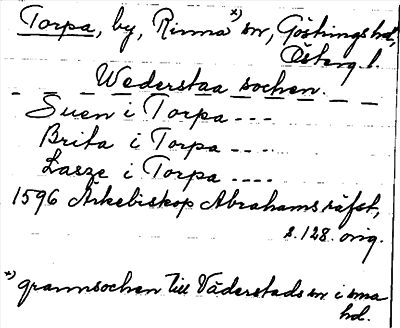 Torpa, by, Rinna*) sn, Göstrings hd,
Österg. l.
Wederstaa sochen.
Suen i Torpa ---
Brita i Torpa ----
Lasze i Torpa ----
1596 Ärkebiskop Abrahams räfst,
s. 128. orig.
*) grannsocken till Väderstads sn i sma
hd.